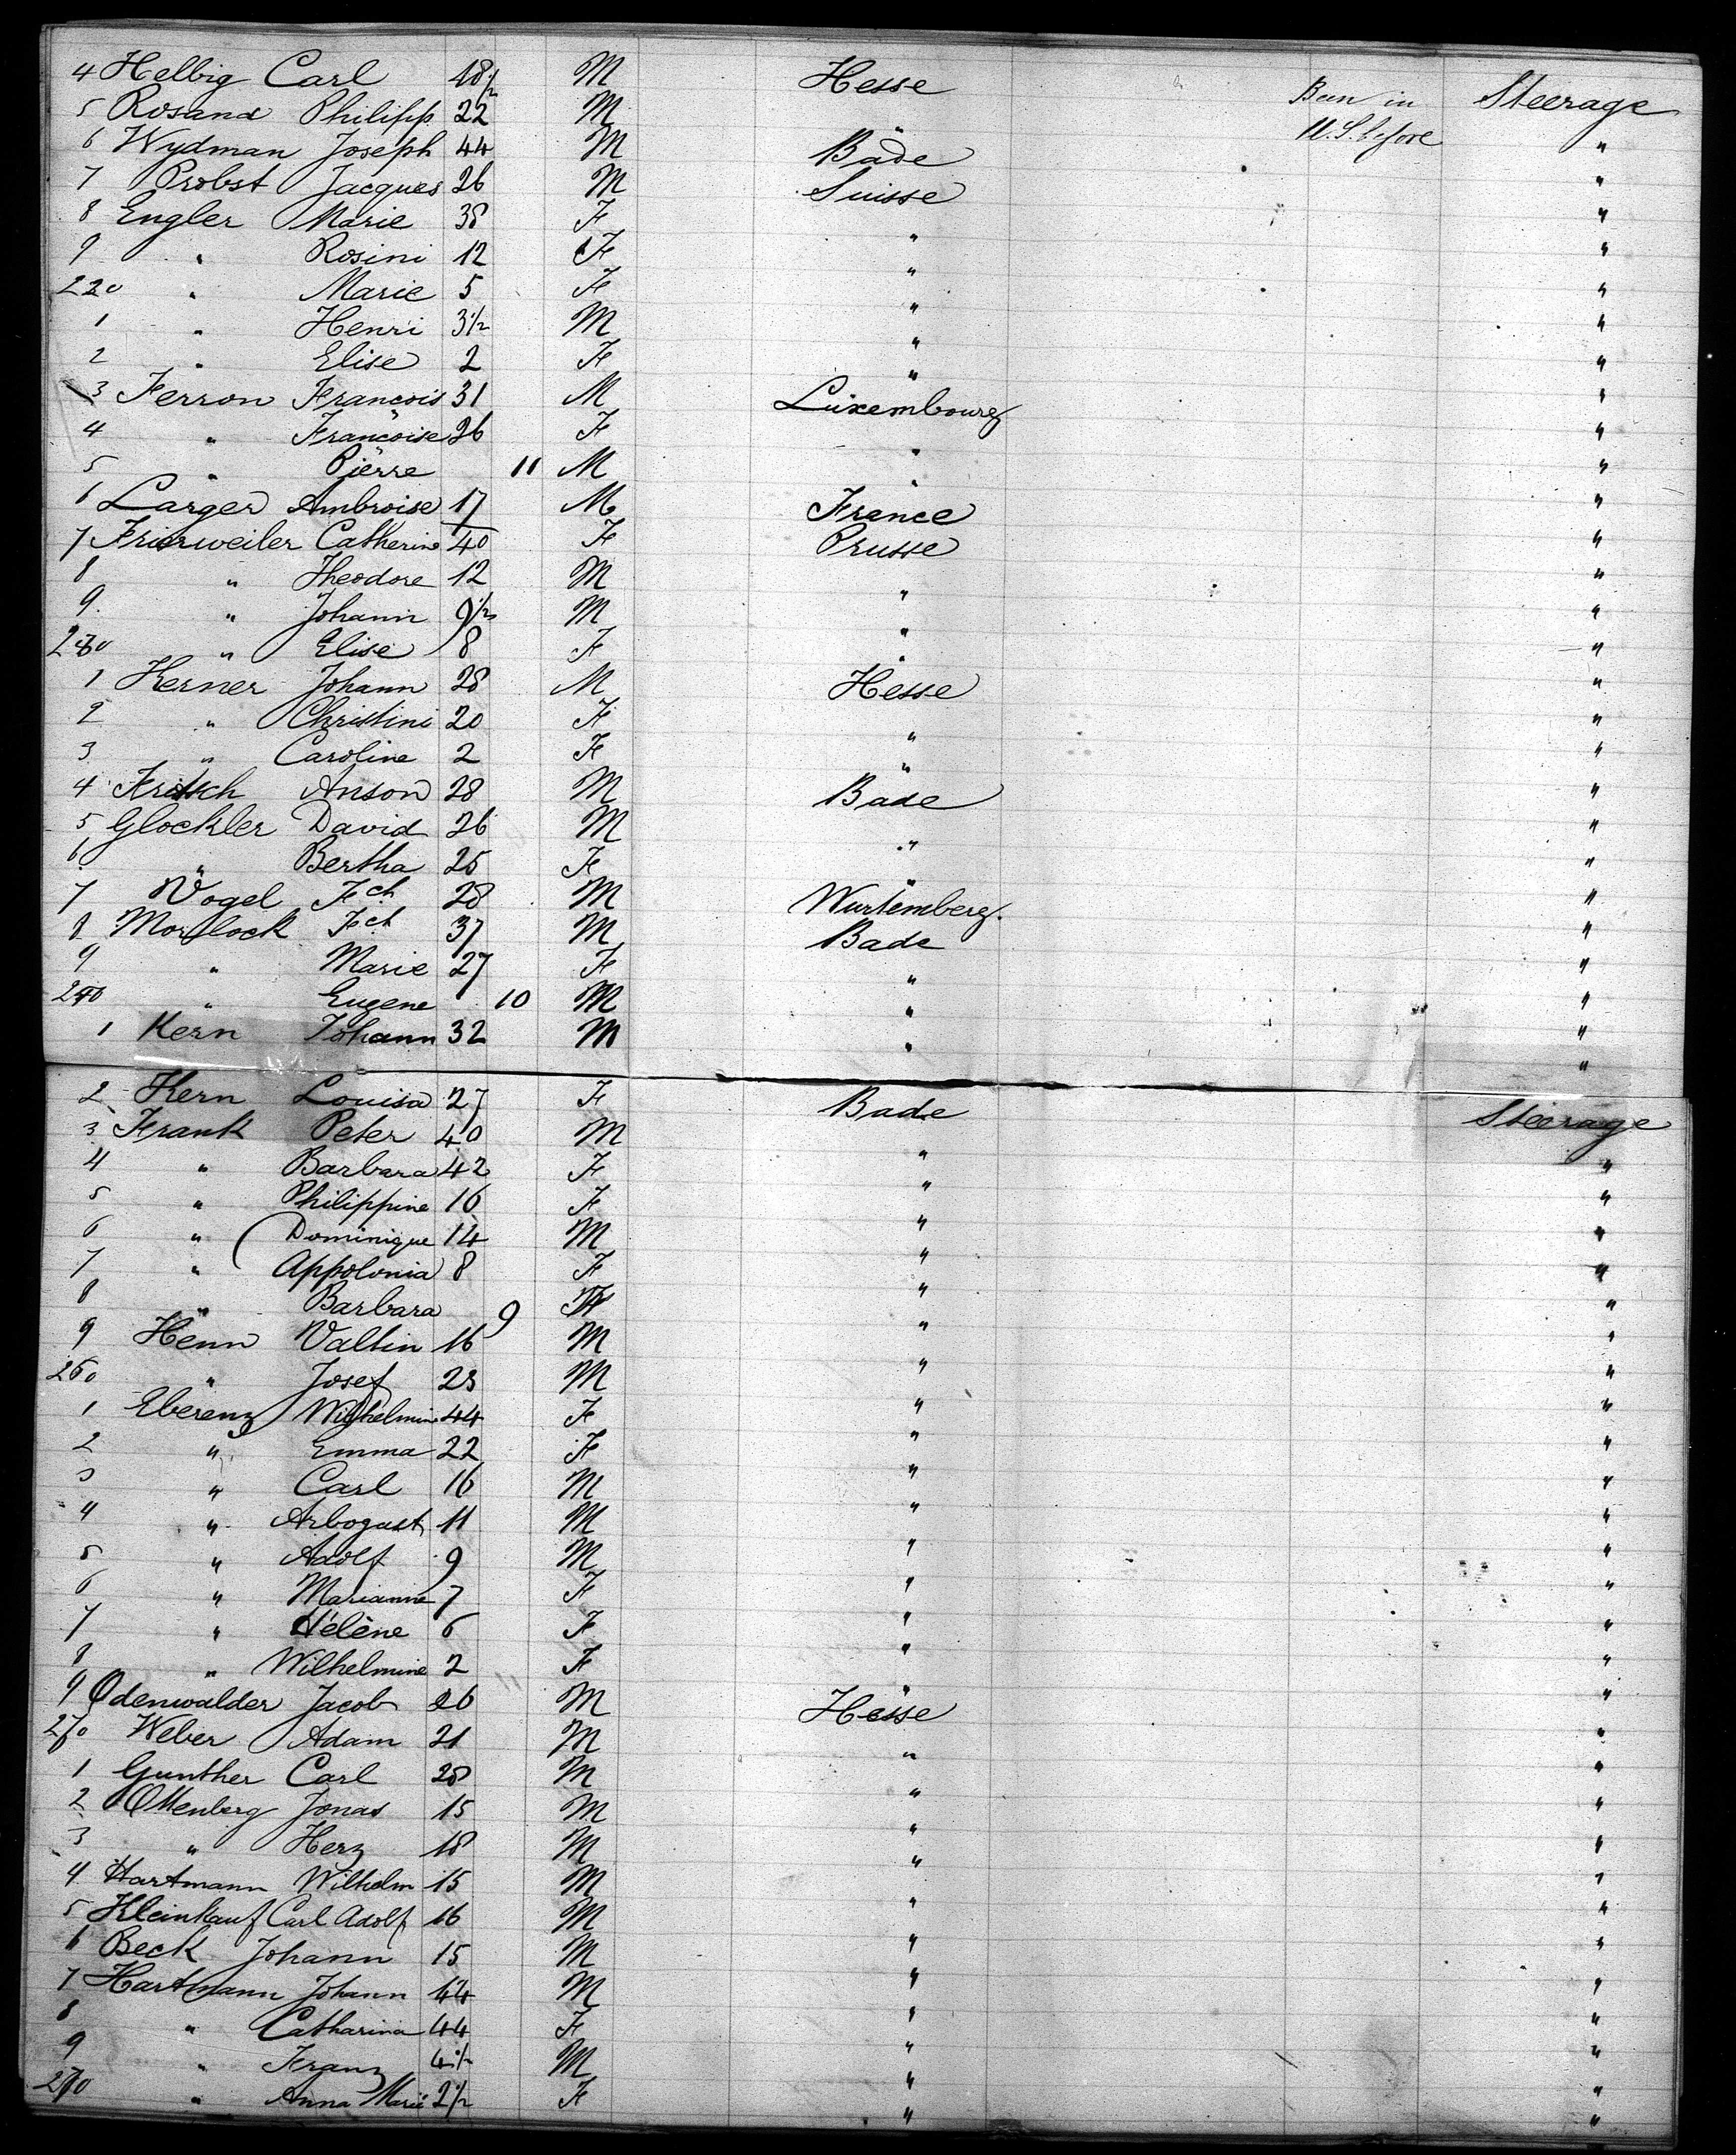 4 Helbig Carl 18 1/2 M Hesse Been in Steerage
5 Rosand Philipp 22 M " U.S. before "
6 Wydman Joseph 44 M Bade "
7 Probst Jacques 26 M Suisse "
8 Engler Marie 38 F " "
9 " Rosini 12 F " "
220 " Marie 5 F " "
1 " Henri 3 1/2 M " "
2 " Elise 2 F " "
3 Ferron Francois 31 M Luxembourg "
4 " Francoise 26 F " "
5 " Pierre 11 M " "
6 Larger Ambroise 17 M France "
7 Frierweiler Catherine 40 F Prusse "
8 " Theodore 12 M " "
9 " Johann 9 1/2 M " "
230 " Elise 8 F " "
1 Kerner Johann 28 M Hesse "
2 " Christini 20 F " "
3 " Caroline 2 F " "
4 Fritsch Anson 28 M Bade "
5 Glockler David 26 M " "
6 " Bertha 25 F " "
7 Vogel Fch 28 M Wurtemberg. "
8 Morlock Fch 37 M Bade "
9 " Marie 27 F " "
240 " Eugene 10 M " "
1 Kern Johann 32 M " "
2 Kern Louisa 27 F Bade Steerage
3 Frank Peter 40 M " "
4 " Barbara 42 F " "
5 " Philippine 16 F " "
6 " Dominique 14 M " "
7 " Appolonia 8 F " "
8 " Barbara 9 F " "
9 Henn Valtin 16 M " "
260 " Josef 23 M " "
1 Eberenz Wilhelmine 44 F " "
2 " Emma 22 F " "
3 " Carl 16 M " "
4 " Arbogast 11 M " "
5 " Adolf 9 M " "
6 " Marianne 7 F " "
7 " Hélène 6 F " "
8 " Wilhelmine 2 F " "
9 Odenwalder Jacob 26 M Hesse "
270 Weber Adam 21 M " "
1 Gunther Carl 28 M " "
2 Ottenberg Jonas 15 M " "
3 " Herz 18 M " "
4 Hartmann Wilhelm 15 M " "
5 Kleinkauf Carl Adolf 16 M " "
6 Beck Johann 15 M " "
7 Hartmann Johann 44 M " "
8 " Catharina 44 F " "
9 " Franz 4 1/2 M " "
270 " Anna Marie 2 1/2 F " "